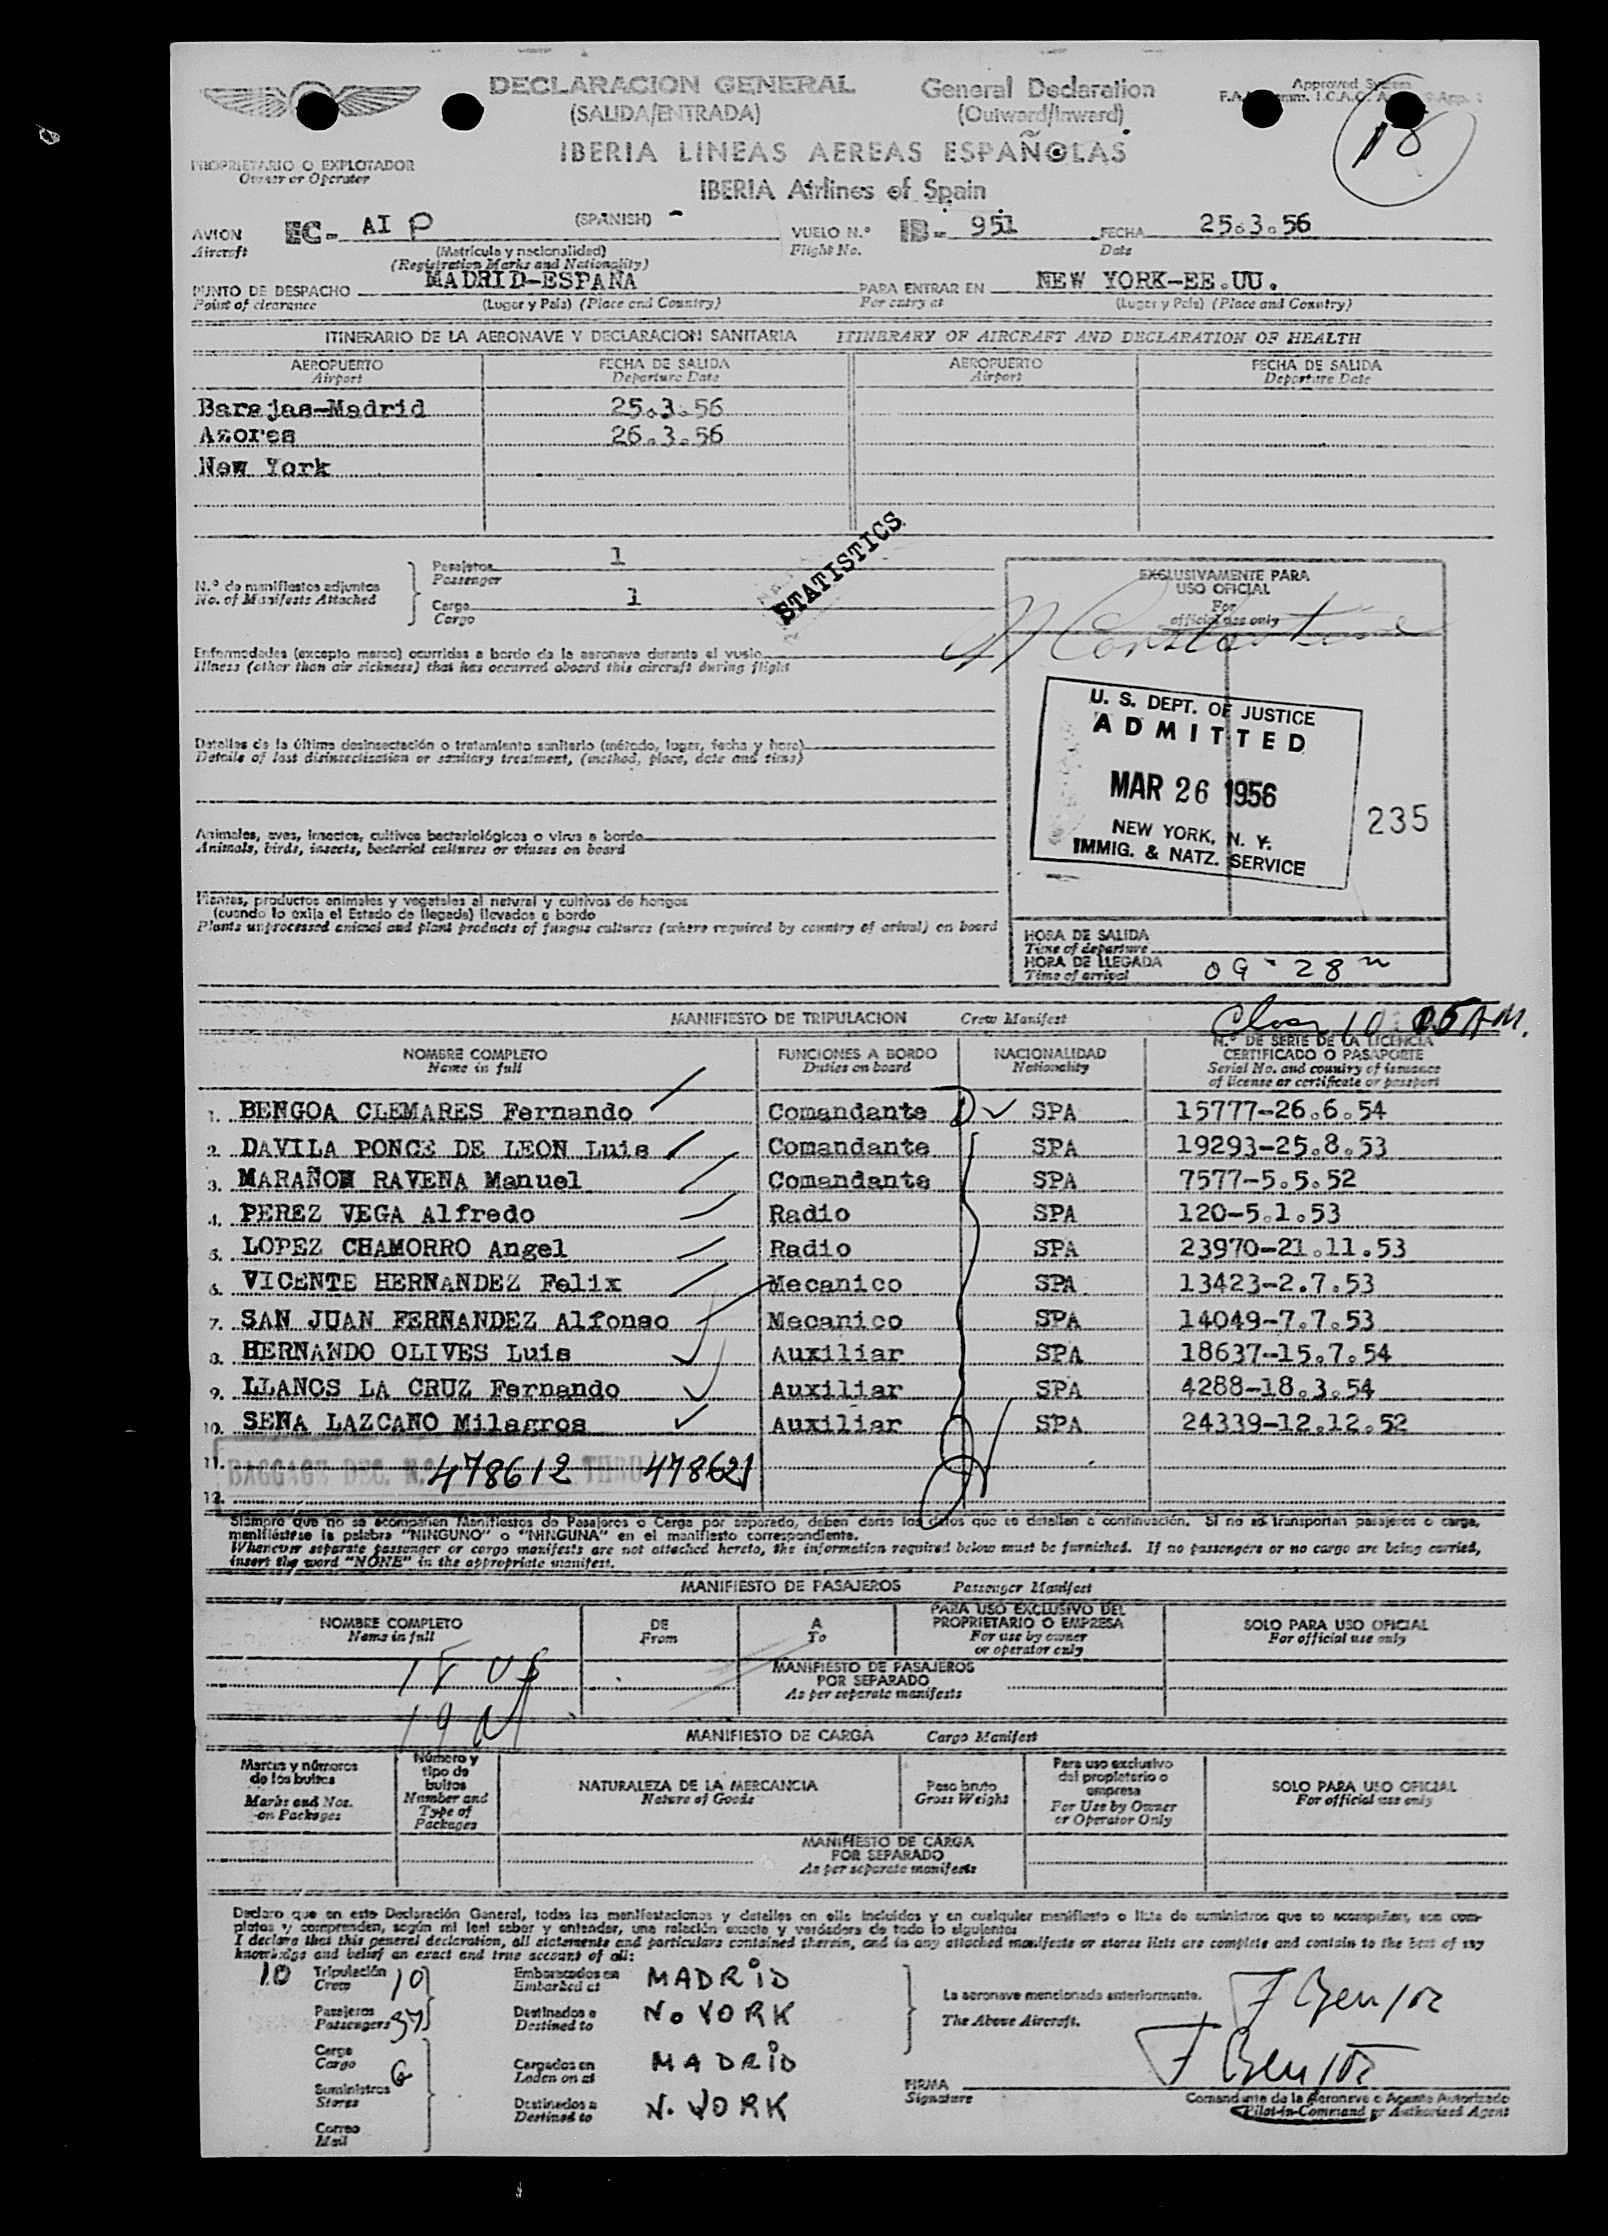 DECLARACION GENERAL General Declaration
(SALIDA/ENTRADA) (Outward/Inward)
Approved System
18
IBERIA LINEAS AEREAS ESPAÑOLAS
PROPRIETARIO O EXPLOTADOR
Owner or Operator
IBERIA Airlines of Spain
AVION EC- AI P (SPANISH) - VUELO N.º IB- 951 FECHA 25.3.56
Aircraft (Matrícula y nacionalidad) Flight No. Date
(Registration Marks and Nationality)
PUNTO DE DESPACHO MADRID-ESPAÑA PARA ENTRAR EN NEW YORK-EE.UU.
Point of clearance (Lugar y País) (Place and Country) For entry at (Lugar y País) (Place and Country)
ITINERARIO DE LA AERONAVE Y DECLARACION SANITARIA ITINERARY OF AIRCRAFT AND DECLARATION OF HEALTH
AEROPUERTO FECHA DE SALIDA AEROPUERTO FECHA DE SALIDA
Airport Departure Date Airport Departure Date
Barajas-Madrid 25.3.56
Azores 26.3.56
New York
STATISTICS
N.º de manifiestos adjuntos
No. of Manifests Attached
Pasajeros 1
Passenger
Carga 1
Cargo
EXCLUSIVAMENTE PARA
USO OFICIAL
For
official use only
Enfermedades (excepto mareo) ocurridas a bordo de la aeronave durante el vuelo
Illness (other than air sickness) that has occurred aboard this aircraft during flight
U. S. DEPT. OF JUSTICE
ADMITTED
MAR 26 1956
NEW YORK, N. Y.
IMMIG. & NATZ. SERVICE
235
Detalles de la última desinsectación o tratamiento sanitario (método, lugar, fecha y hora)
Details of last disinsectization or sanitary treatment, (method, place, date and time)
Animales, aves, insectos, cultivos bacteriológicos o virus a bordo
Animals, birds, insects, bacterial cultures or viuses on board
Plantas, productos animales y vegetales al natural y cultivos de hongos
(cuando lo exija el Estado de llegada) llevados a bordo
Plants unprocessed animal and plant products of fungus cultures (where required by country of arival) on board
HORA DE SALIDA
Time of departure
HORA DE LLEGADA 09-28
Time of arrival
10 05 AM.
MANIFIESTO DE TRIPULACION Crew Manifest
NOMBRE COMPLETO FUNCIONES A BORDO NACIONALIDAD N.º DE SERIE DE LA LICENCIA
Name in full Duties on board Nationality CERTIFICADO O PASAPORTE
Serial No. and country of issuance
of license or certificate or passport
1. BENGOA CLEMARES Fernando Comandante SPA 15777-26.6.54
2. DAVILA PONCE DE LEON Luis Comandante SPA 19293-25.8.53
3. MARAÑON RAVENA Manuel Comandante SPA 7577-5.5.52
4. PEREZ VEGA Alfredo Radio SPA 120-5.1.53
5. LOPEZ CHAMORRO Angel Radio SPA 23970-21.11.53
6. VICENTE HERNANDEZ Felix Mecanico SPA 13423-2.7.53
7. SAN JUAN FERNANDEZ Alfonso Mecanico SPA 14049-7.7.53
8. HERNANDO OLIVES Luis Auxiliar SPA 18637-15.7.54
9. LLANOS LA CRUZ Fernando Auxiliar SPA 4288-18.3.54
10. SENA LAZCANO Milagros Auxiliar SPA 24339-12.12.52
11. BAGGAGE DEC. N.º 478612 THRU 478621
12.
Siempre que no se acompañen Manifiestos de Pasajeros o Carga por separado, deben darse los datos que se detallan a continuación. Si no se transportan pasajeros o carga,
manifiéstese la palabra "NINGUNO" o "NINGUNA" en el manifiesto correspondiente.
Whenever separate passenger or cargo manifests are not attached hereto, the information required below must be furnished. If no passengers or no cargo are being carried,
insert the word "NONE" in the appropriate manifest.
MANIFIESTO DE PASAJEROS Passenger Manifest
NOMBRE COMPLETO DE A PARA USO EXCLUSIVO DEL SOLO PARA USO OFICIAL
Name in full From To PROPRIETARIO O EMPRESA For official use only
For use by owner
or operator only
MANIFIESTO DE PASAJEROS
POR SEPARADO
As per separate manifests
MANIFIESTO DE CARGA Cargo Manifest
Marcas y números
de los bultos
Marks and Nos.
on Packages
Número y
tipo de
bultos
Number and
Type of
Packages
NATURALEZA DE LA MERCANCIA
Nature of Goods
Peso bruto
Gross Weight
Para uso exclusivo
del propietario o
empresa
For Use by Owner
or Operator Only
SOLO PARA USO OFICIAL
For official use only
MANIFIESTO DE CARGA
POR SEPARADO
As per separate manifests
Declaro que en esta Declaración General, todas las manifestaciones y detalles en ella incluídos y en cualquier manifiesto o lista de suministros que se acompañen, son com-
pletos y comprenden, según mi leal saber y entender, una relación exacta y verdadera de todo lo siguiente:
I declare that this general declaration, all statements and particulars contained therein, and in any attached manifests or stores lists are complete and contain to the best of my
knowledge and belief an exact and true account of all:
10 Tripulación 10 Embarcados en MADRID
Crew Embarked at
Pasajeros 37 Destinados a N. YORK
Passengers Destined to
La aeronave mencionada anteriormente.
The Above Aircraft.
F Bengoa
Carga Cargados en MADRID
Cargo Laden on at
Suministros
Stores
Destinados a N. YORK
Destined to
Correo
Mail
FIRMA F Bengoa
Signature
Comandante de la Aeronave o Agente Autorizado
Pilot-in-Command or Authorized Agent